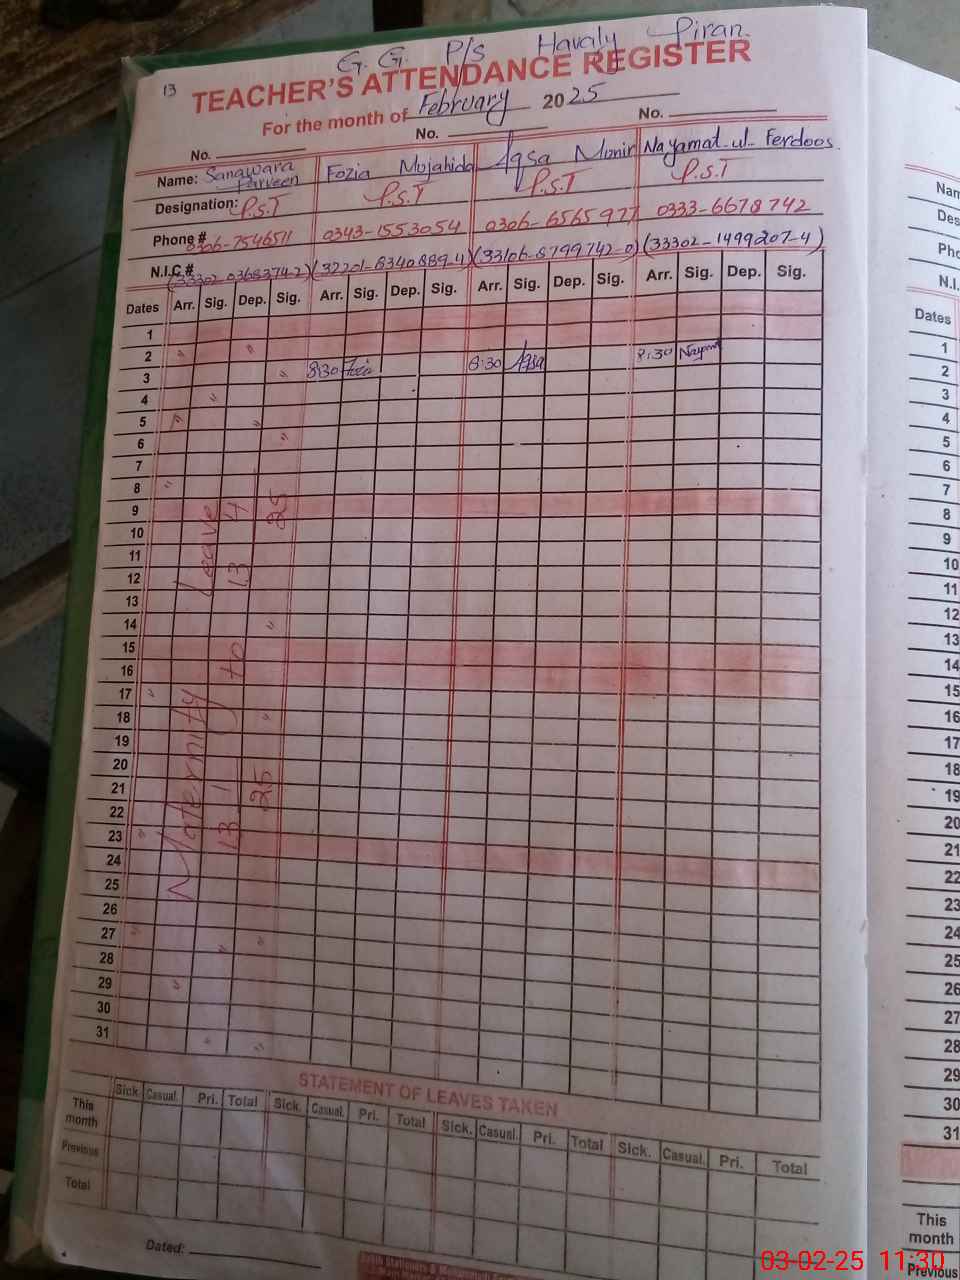 G.G. P/S Havaly Piran.
13
TEACHER'S ATTENDANCE REGISTER
For the month of February 2025
No. No. No.
Name: Sanawara Parveen Fozia Mojahida Aqsa Monir Nayamat-ul-Ferdoos.
Designation: P.S.T P.S.T P.S.T P.S.T
Phone # 0306-7546511 0343-1553054 0306-6565977 0333-6678742
N.I.C.# (33302-0368374-2) (32201-8340889-4) (33106-8799742-0) (33302-1499207-4)
Dates Arr. Sig. Dep. Sig. Arr. Sig. Dep. Sig. Arr. Sig. Dep. Sig. Arr. Sig. Dep. Sig.
1
2
3 8:30 Fozia 8:30 Aqsa 8:30 Nayamat
4
5
6
7
8
9
10
11
12
13
14
15
16
17
18
19
20
21
22
23
24
25
26
27
28
29
30
31
Maternity Leave
13 1 25 to 13 4 25
STATEMENT OF LEAVES TAKEN
Sick. Casual. Pri. Total Sick. Casual. Pri. Total Sick. Casual. Pri. Total Sick. Casual. Pri. Total
This month
Previous
Total
Dated:
Dates
1
2
3
4
5
6
7
8
9
10
11
12
13
14
15
16
17
18
19
20
21
22
23
24
25
26
27
28
29
30
31
This month
Previous
03-02-25 11:30